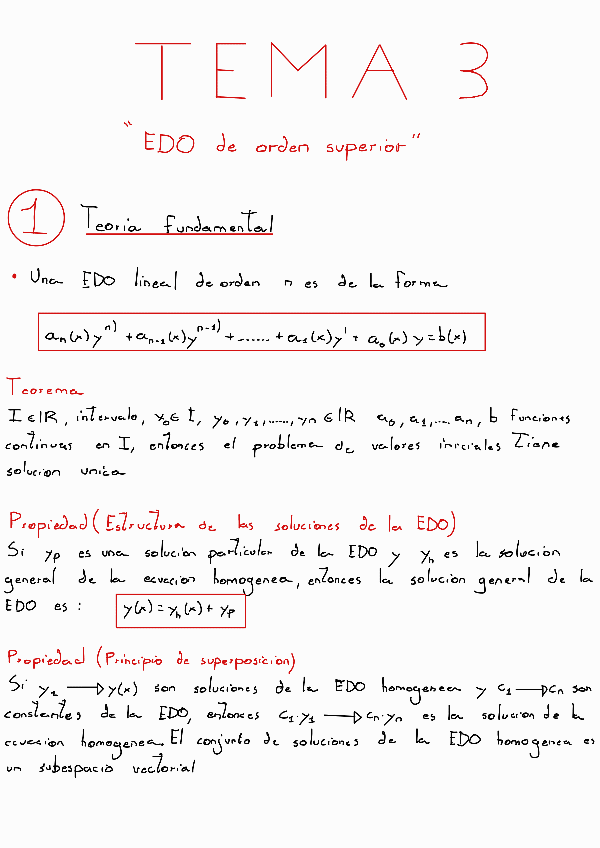 TEMA 3
"EDO de orden superior"
1 Teoria fundamental
• Una EDO lineal de orden n es de la forma
aₙ(x)yⁿ⁾ + aₙ₋₁(x)yⁿ⁻¹⁾ + ...... + a₁(x)y' + a₀(x)y = b(x)
Teorema
I ∈ IR, intervalo, x₀ ∈ I, y₀, y₁, ....., yₙ ∈ IR a₀, a₁, ... aₙ, b funciones
continuas en I, entonces el problema de valores iniciales Tiene
solucion unica
Propiedad (Estructura de las soluciones de la EDO)
Si yp es una solucion particular de la EDO y yₕ es la solucion
general de la ecuacion homogenea, entonces la solucion general de la
EDO es : y(x) = yₕ(x) + yp
Propiedad (Principio de superposicion)
Si y₁ → y(x) son soluciones de la EDO homogenea y c₁ → cn son
constantes de la EDO, entonces c₁·y₁ → cn·yn es la solucion de la
ecuacion homogenea. El conjunto de soluciones de la EDO homogenea es
un subespacio vectorial